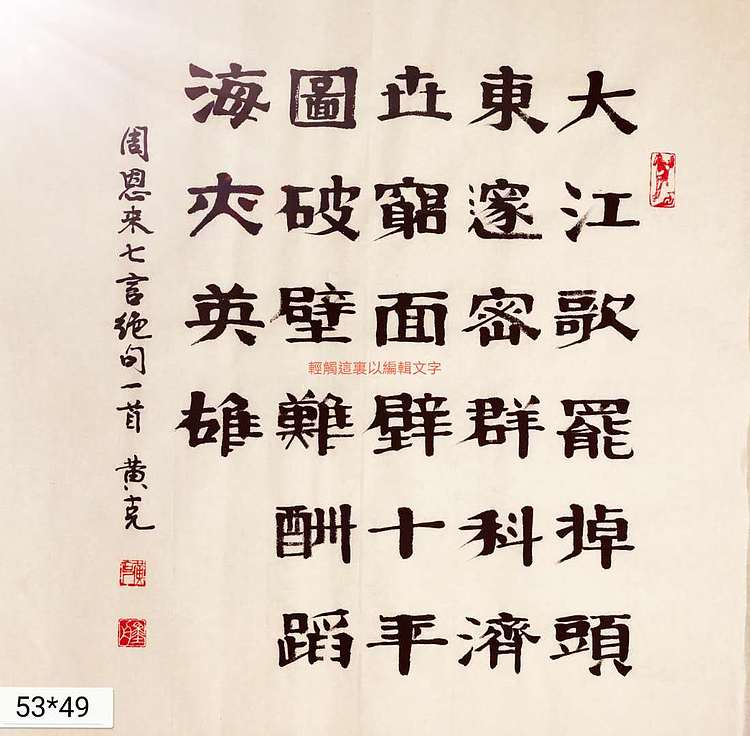 大江歌罷掉頭
東邃密群科濟
世窮面壁十年
圖破壁難酬蹈
海亦英雄
周恩来七言绝句一首 黄克
輕觸這裏以編輯文字
53*49